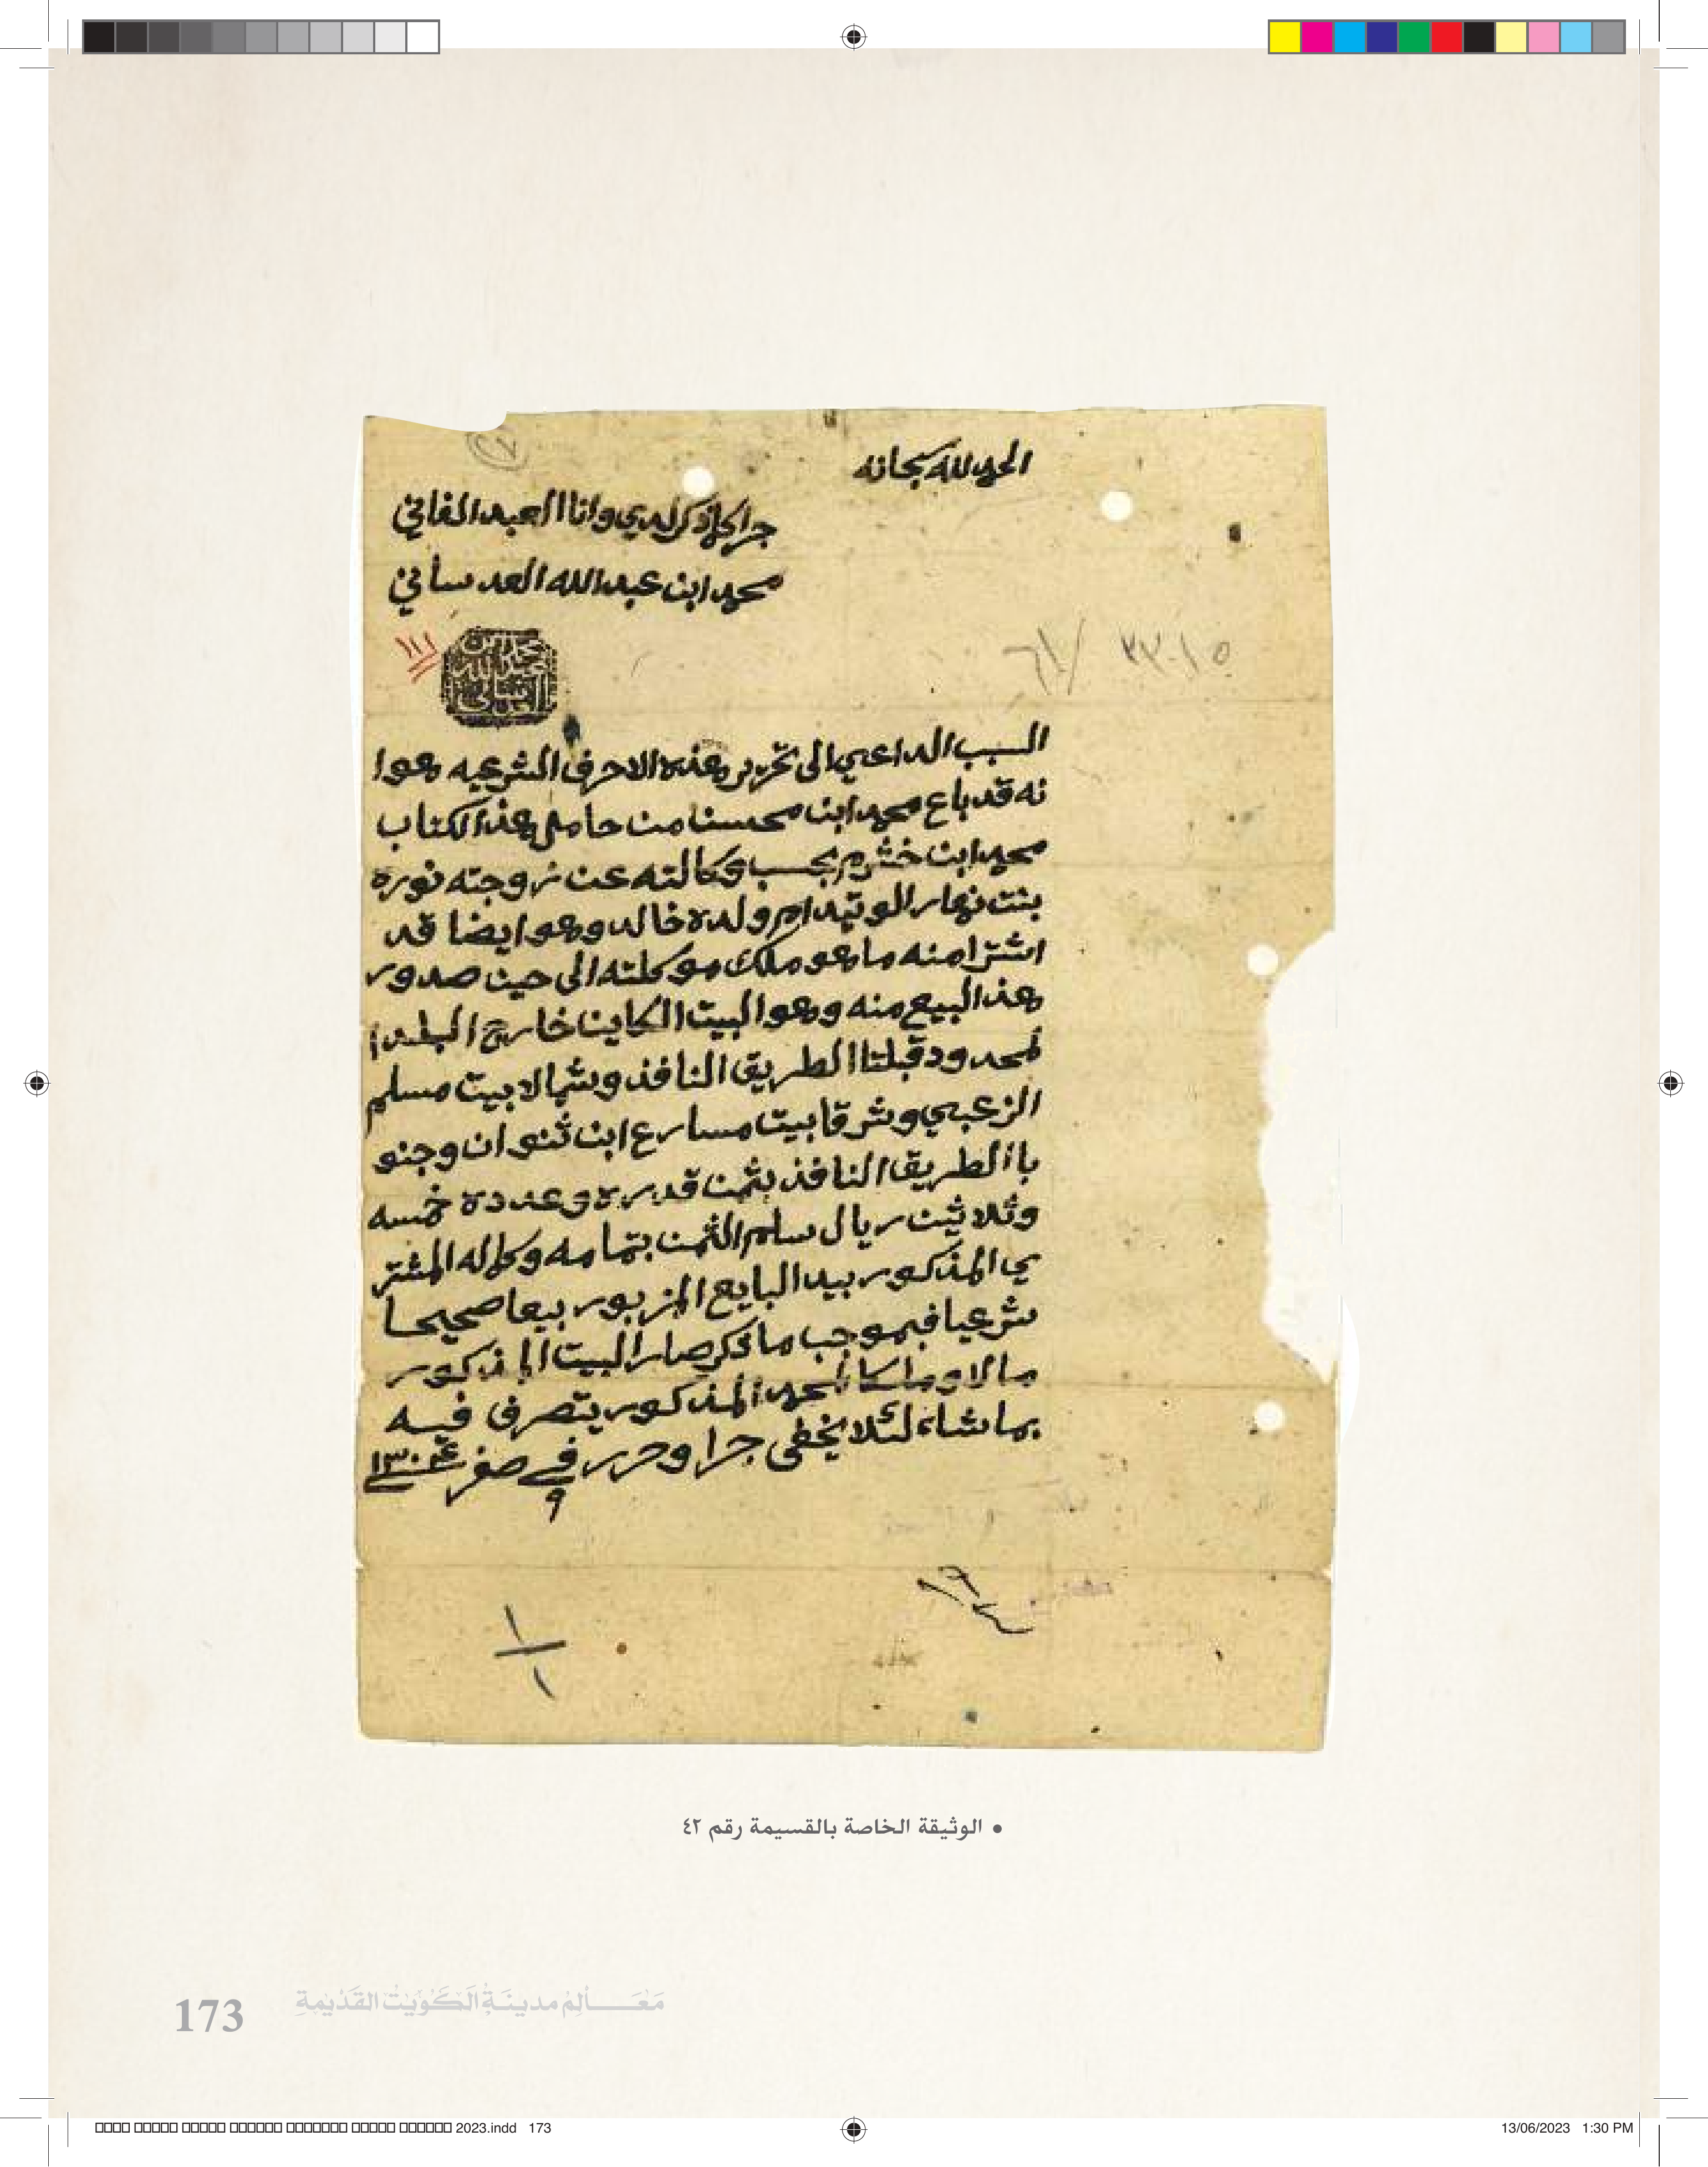 الحمد لله سبحانه
جرا كلما ذكر لدي وانا العبد الفاني
محمد ابن عبد الله العدساني
١١١
السبب الداعي الى تحرير هذه الاحرف الشرعيه هوا
نه قد باع محمد ابن محسنا من حامل هذا الكتاب
محمد ابن خشرم بحسب وكالته عن زوجته نوره
بنت نهار الوتيد ام ولده خالد وهو ايضا قد
اشترا منه ما هو ملك موكلته الى حين صدور
هذا البيع منه وهو البيت الكاينا خارج البلد ا
لمحدود قبلتا الطريق النافذ وشمالا بيت مسلم
الزعبي وشرقا بيت مسارع ابن ثنوان وجنو
باا لطريق النافذ بثمن قدره وعدده خمسه
وثلاثين ريال سلم الثمن بتمامه وكماله المشتر
ي المذكور بيد البايع المزبور بيعا صحيحا
شرعيا فبموجب ما ذكر صار البيت المذكور
مالا وملكا لمحمد المذكور يتصرف فيه
بما شاء لئلا يخفى جرا وحرر في ٩ صفر ١٣٠٤
١
١
• الوثيقة الخاصة بالقسيمة رقم ٤٢
173 مَعَــالِمُ مدينَةِ الكُوَيْتْ القَدْيمةِ
2023.indd 173 13/06/2023 1:30 PM